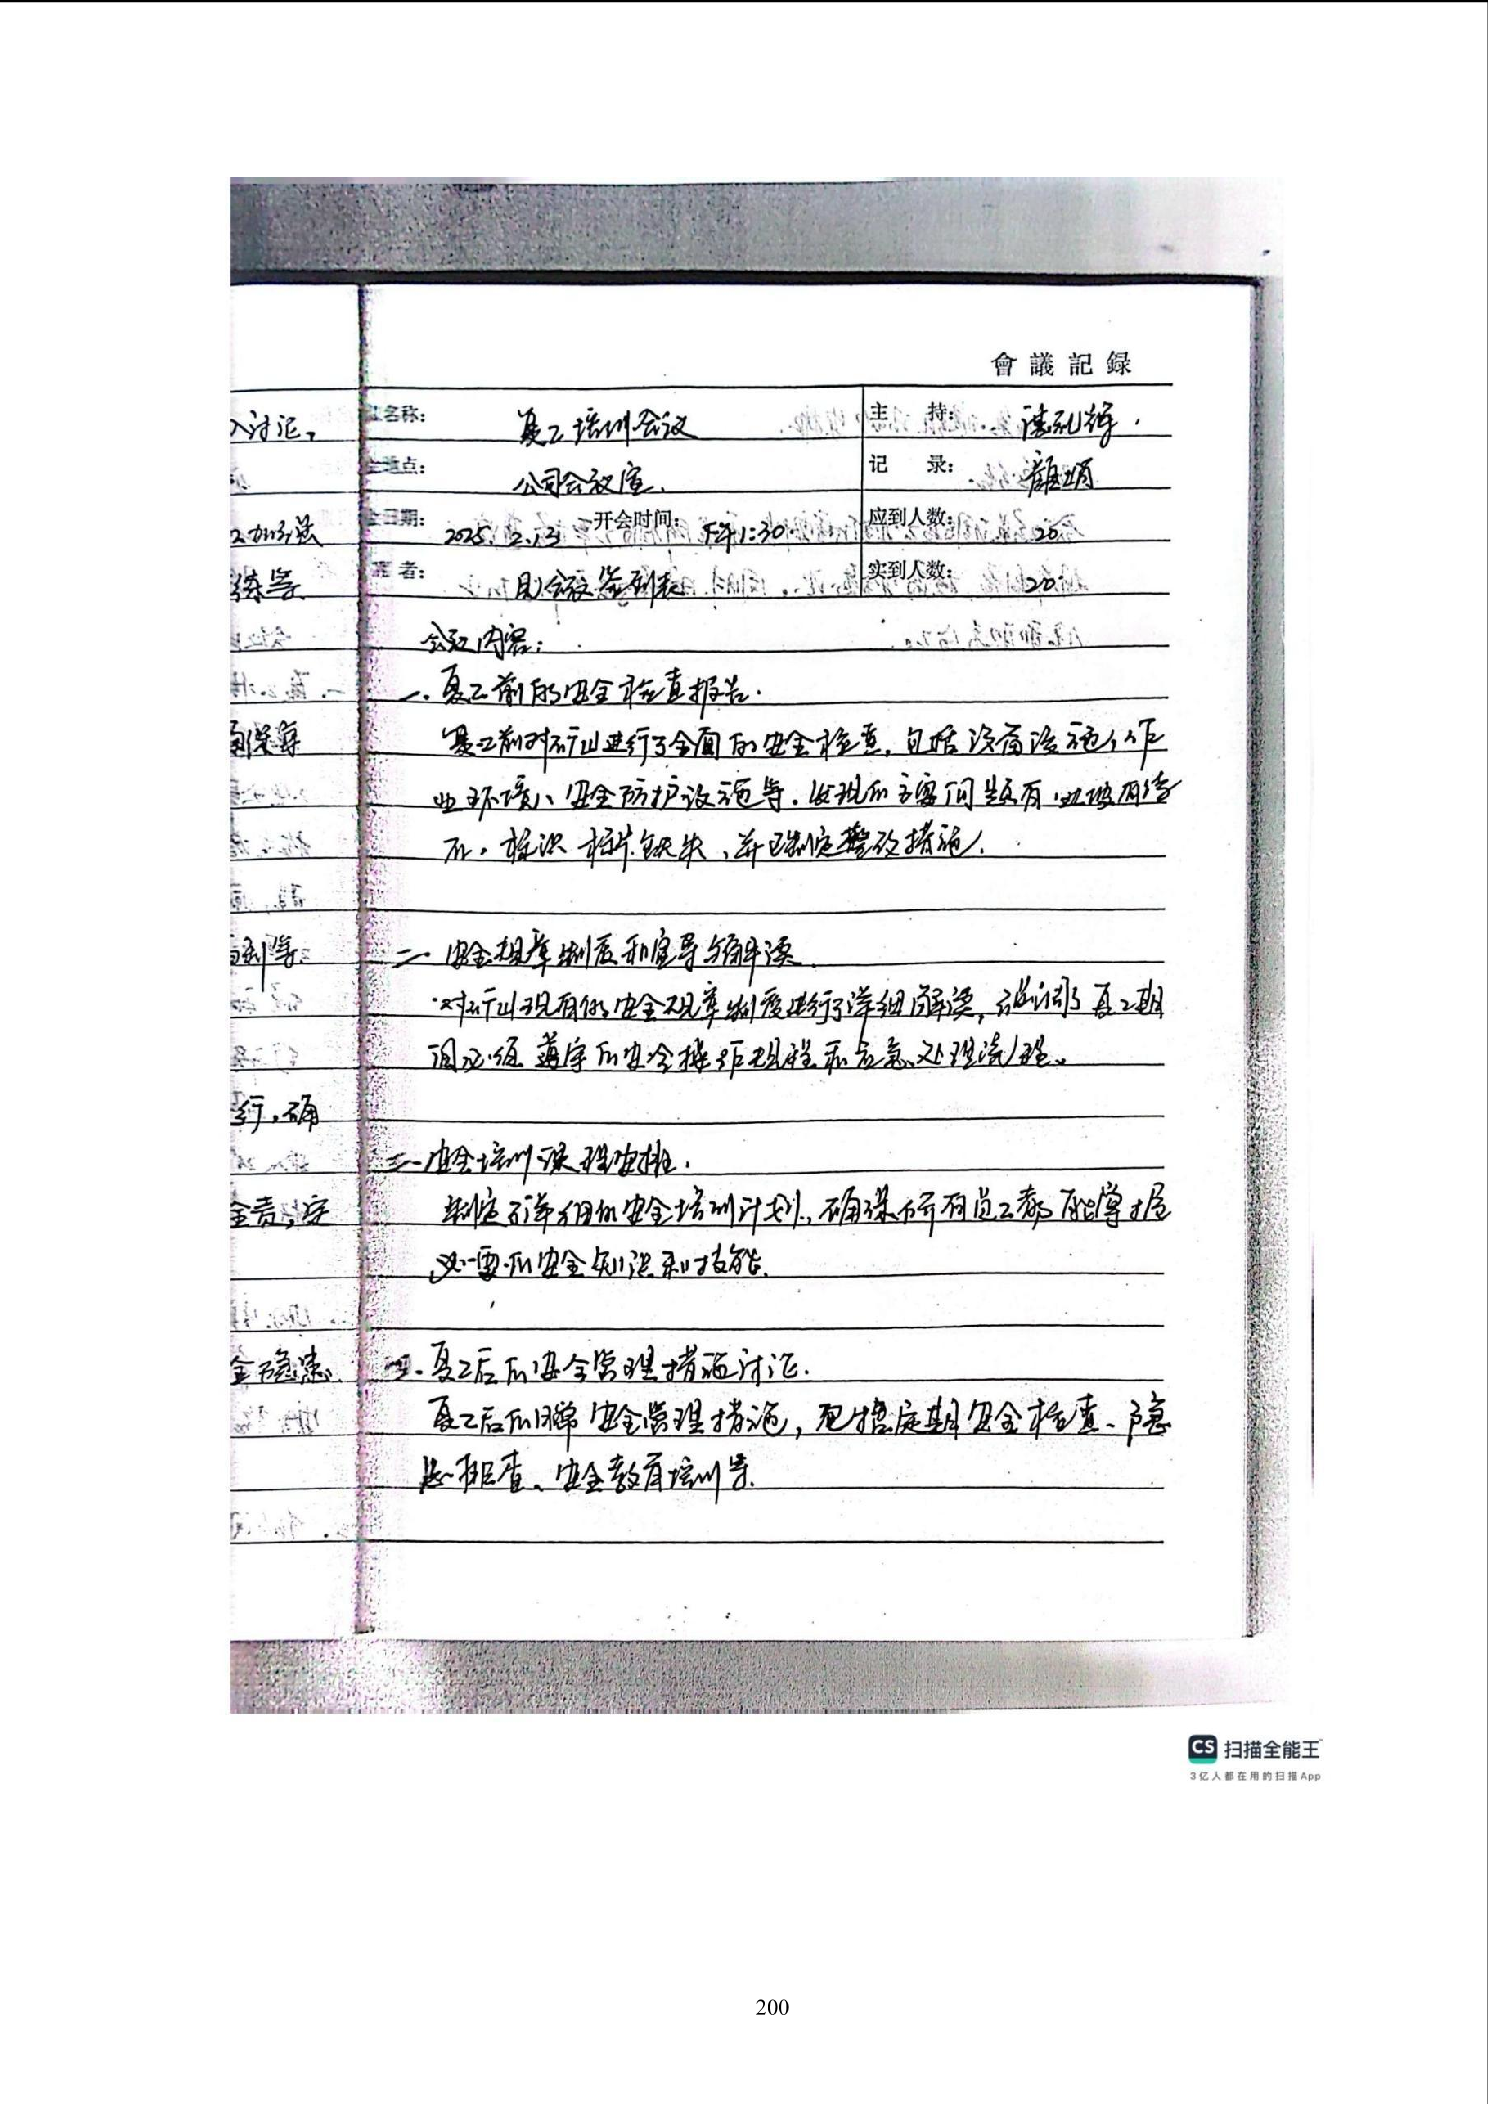 會議記録
名称： 复工培训会议 主 持：
地点： 公司会议室. 记 录：
日期： 2025. 2.13 开会时间： 下午1:30 应到人数： 20
席者： 见会议签到表 实到人数： 20
入讨论，
会议内容：
一. 复工前的安全检查报告.
复工前对矿山进行了全面的安全检查，包括设备设施、作
业环境、安全防护设施等. 发现的主要问题有
标识标牌缺失，并已制定整改措施.
二. 安全规章制度和宣导与解读.
对矿山现有的安全规章制度进行了详细解读，强调了复工期
间必须遵守的安全操作规程和应急处理流程。
行，确
三. 安全培训课程安排.
全责，安
制定了详细的安全培训计划，确保所有员工都能掌握
必要的安全知识和技能.
全隐患.
四. 复工后的安全管理措施讨论.
复工后的日常安全管理措施，包括定期安全检查、隐
患排查、安全教育培训等.
CS 扫描全能王
3亿人都在用的扫描App
200